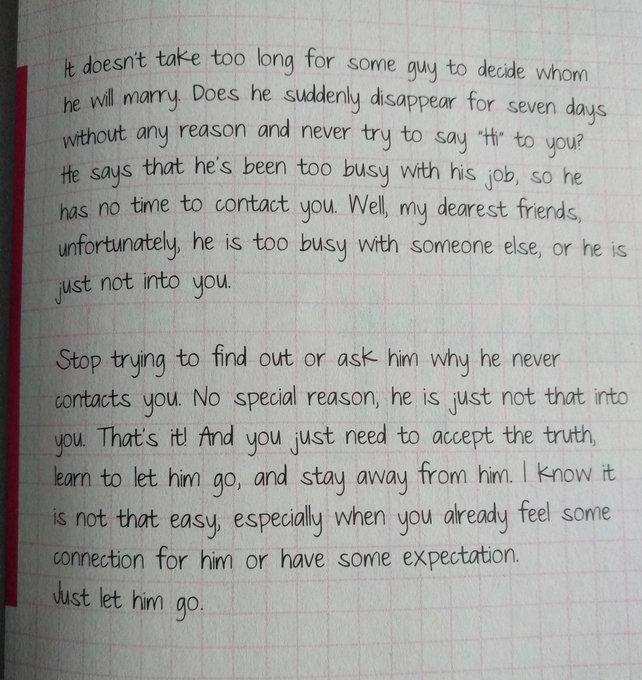 It doesn't take too long for some guy to decide whom
he will marry. Does he suddenly disappear for seven days
without any reason and never try to say "Hi" to you?
He says that he's been too busy with his job, so he
has no time to contact you. Well, my dearest friends,
unfortunately, he is too busy with someone else, or he is
just not into you.
Stop trying to find out or ask him why he never
contacts you. No special reason, he is just not that into
you. That's it! And you just need to accept the truth,
learn to let him go, and stay away from him. I know it
is not that easy, especially when you already feel some
connection for him or have some expectation.
Just let him go.